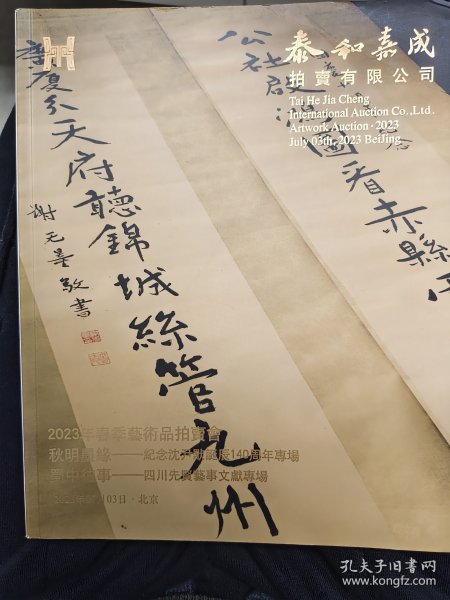 泰和嘉成
拍賣有限公司
Tai He Jia Cheng
International Auction Co.,Ltd.
Artwork Auction·2023
July 03th, 2023 BeiJing
看赤縣
天府聽錦城絲管九州
謝无量敬書
2023年春季藝術品拍賣會
秋明墨緣——紀念沈尹默誕辰140周年專場
蜀中往事——四川先賢藝事文獻專場
03日·北京
孔夫子旧书网
www.kongfz.com